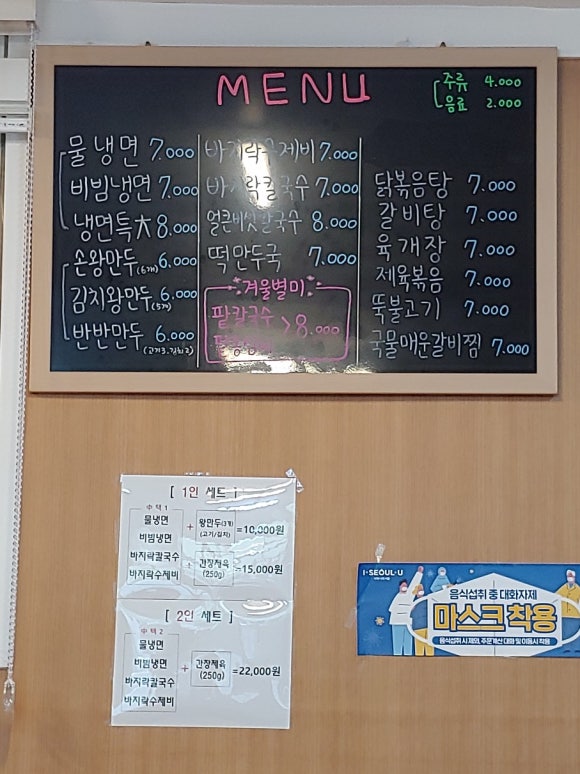 MENU
주류 4.000
음료 2.000
물냉면 7.000
비빔냉면 7.000
냉면특大 8.000
손왕만두(6개) 6.000
김치왕만두(5개) 6.000
반반만두 6.000
(고기3.김치2)
바지락수제비 7.000
바지락칼국수 7.000
얼큰버섯칼국수 8.000
떡만두국 7.000
겨울별미
팥칼국수 >8.000
닭볶음탕 7.000
갈비탕 7.000
육개장 7.000
제육볶음 7.000
뚝불고기 7.000
국물매운갈비찜 7.000
[ 1인 세트 ]
수택1
물냉면
비빔냉면
바지락칼국수
바지락수제비
+ 왕만두(3개) (고기/김치) =10,000원
+ 간장제육 (250g) =15,000원
[ 2인 세트 ]
수택2
물냉면
비빔냉면
바지락칼국수
바지락수제비
+ 간장제육 (250g) =22,000원
I·SEOUL·U
음식섭취 중 대화자제
마스크 착용
음식섭취 시 제외, 주문/계산 대화 및 이동시 착용